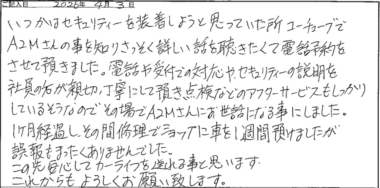 ご記入日 2026年 4月 3日
いつかはセキュリティーを装着しようと思っていた所ユーチューブで
A2Mさんの事を知りさっそく詳しい話を聴きたくて電話予約を
させて頂きました。電話や受付での対応や、セキュリティーの説明を
社員の方が親切、丁寧にして頂き点検などのアフターサービスもしっかり
しているそうなのでその場でA2Mさんにお世話になる事にしました。
1ヶ月経過し、その間修理でショップに車を1週間預けましたが
誤報もまったくありませんでした。
この先安心してカーライフを送れる事と思います。
これからもよろしくお願い致します。